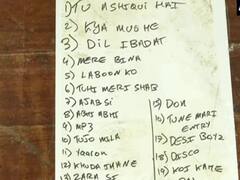 1) TU ASHIQUI HAI
2) KYA MUGHE
3) DIL IBADAT
4) MERE BINA
5) LABOON KO
6) TUHI MERI SHAB
7) AJAB SI
8) ABHI ABHI
9) MP3
10) TUJO MILA
11) YAARON
12) KHUDA JAANE
13) ZARA SI
15) DON
16) TUNE MARI ENTRY
17) DESI BOYZ
18) DISCO
19) KOI KAHE